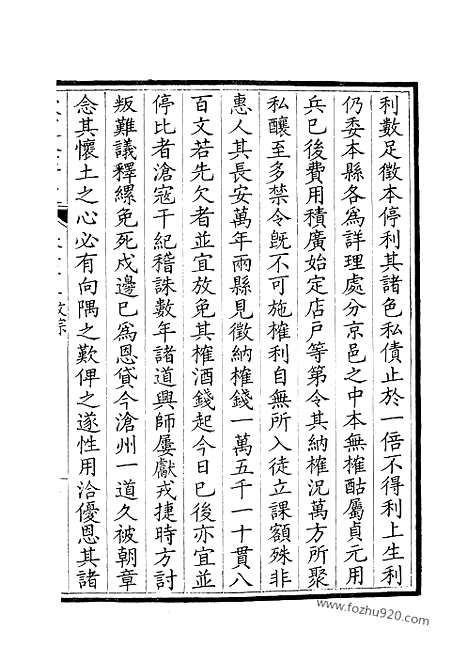 利數足徵本停利其諸色私債止於一倍不得利上生利
仍委本縣各爲詳理處分京邑之中本無榷酤屬貞元用
兵已後費用積廣始定店戶等第令其納榷況萬方所聚
私釀至多禁令既不可施榷利自無所入徒立課額殊非
惠人其長安萬年兩縣見徵納榷錢一萬五千一十貫八
百文若先欠者並宜放免其榷酒錢起今日已後亦宜並
停比者滄寇干紀稽誅數年諸道興師屢獻戎捷時方討
叛難議釋縲免死戍邊已爲恩貸今滄州一道久被朝章
念其懷土之心必有向隅之歎俾之遂性用洽優恩其諸
www.fozhu920.com